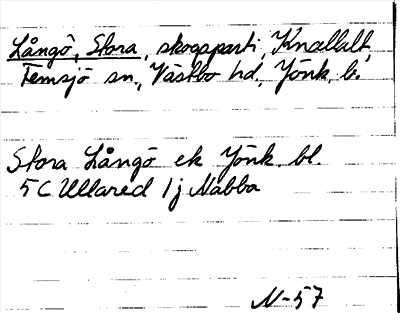 Långö, Stora, skogsparti, Knallalt,
Femsjö sn, Västbo hd, Jönk. l.
Stora Långö ek Jönk. bl.
5C Ullared 1j Nabba
N-57